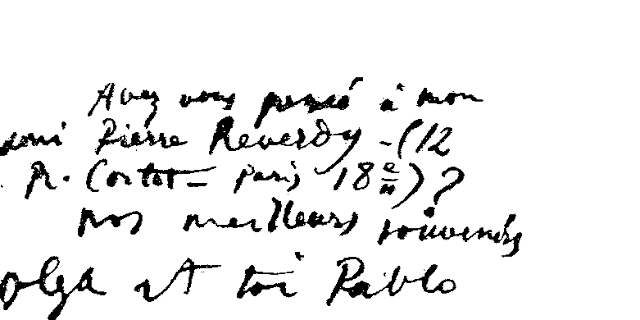 Avez vous pensé à mon
ami Pierre Reverdy - (12
R. Cortot - Paris 18 em) ?
nos meilleurs souvenirs
Olga et toi Pablo